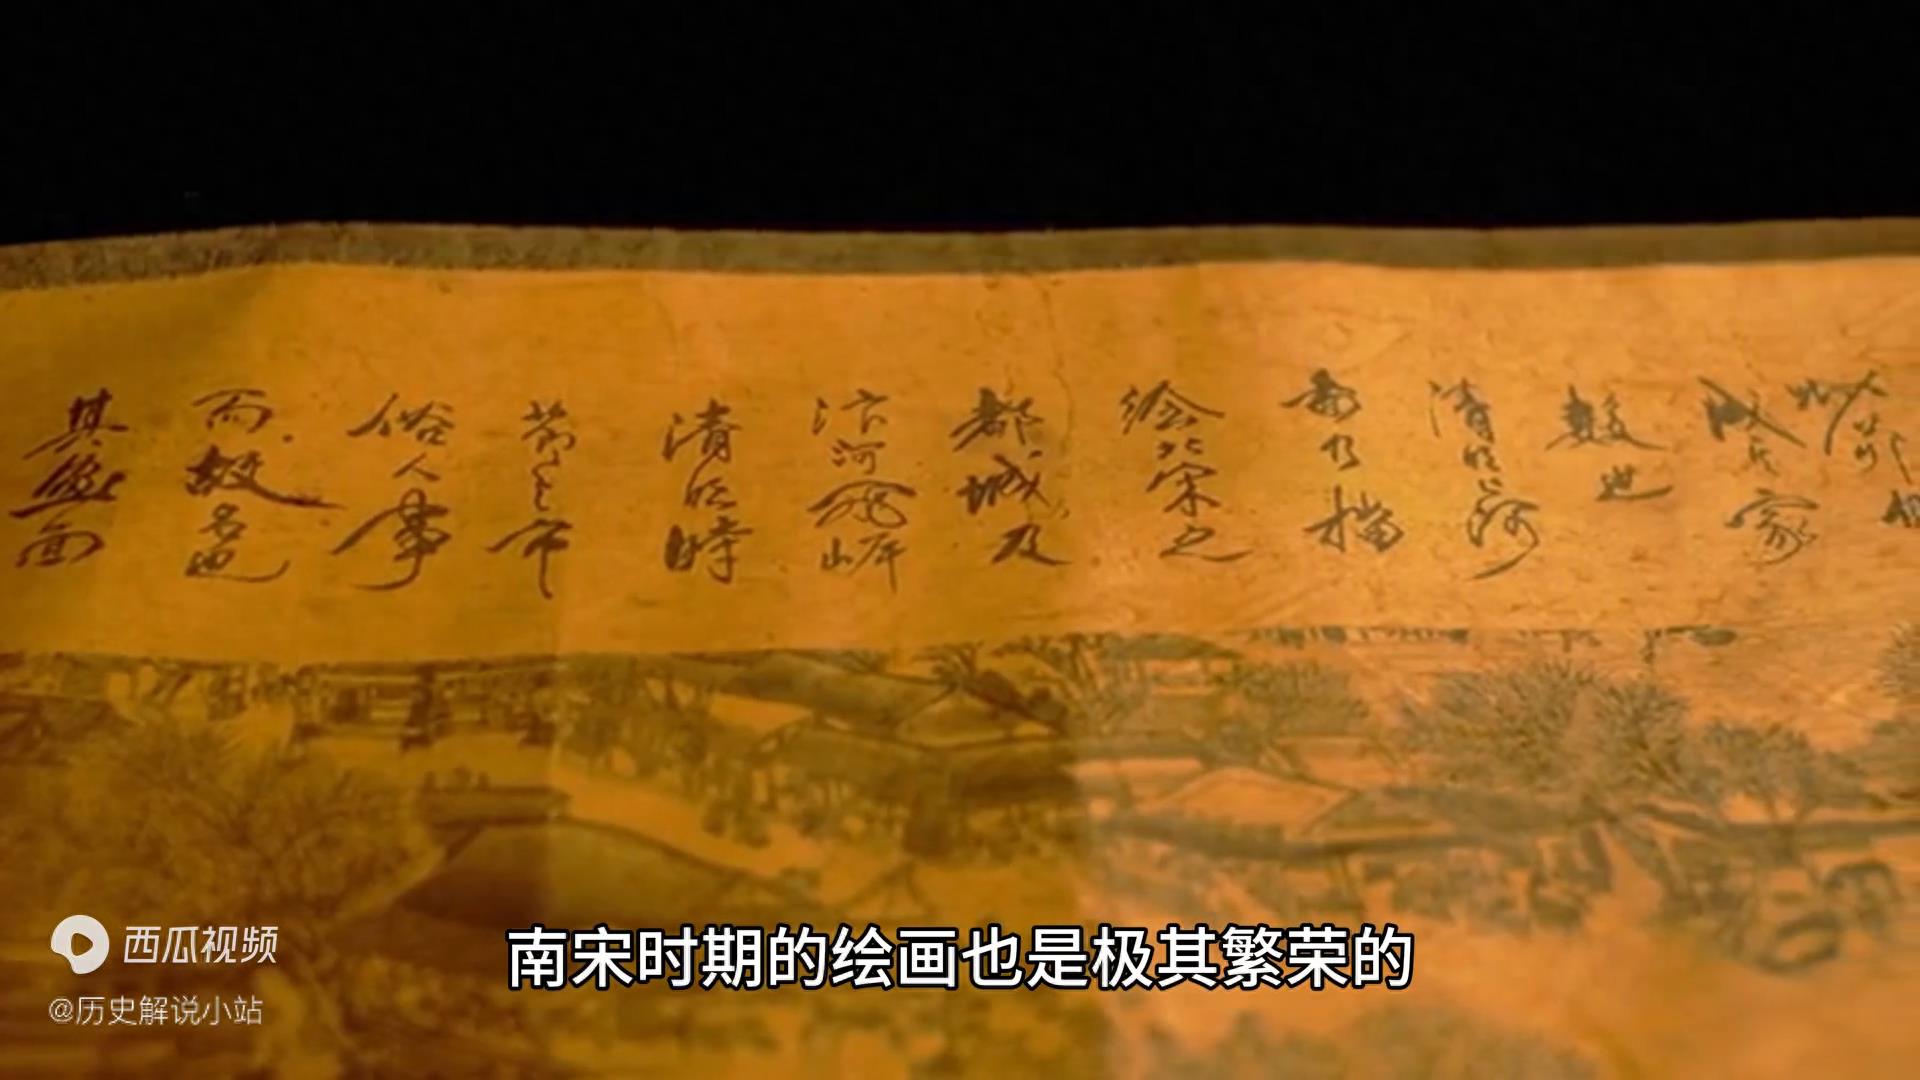 家
数也
清明上河
绘北宋之
都城及
汴河两岸
清明時
节之市
俗人事
而故名也
其後面
南宋时期的绘画也是极其繁荣的
西瓜视频
@历史解说小站